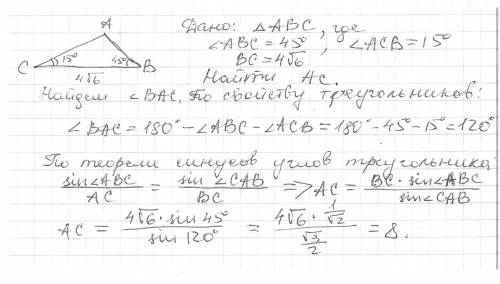 A
Дано: △ABC, где
∠ABC = 45°, ∠ACB = 15°
C 15° 45° B
BC = 4√6
4√6
Найти AC.
Найдем ∠BAC. По свойству треугольников:
∠BAC = 180° - ∠ABC - ∠ACB = 180° - 45° - 15° = 120°
По теореме синусов углов треугольника:
sin∠ABC / AC = sin∠CAB / BC => AC = BC · sin∠ABC / sin∠CAB
AC = 4√6 · sin 45° / sin 120° = 4√6 · 1/√2 / √3/2 = 8.